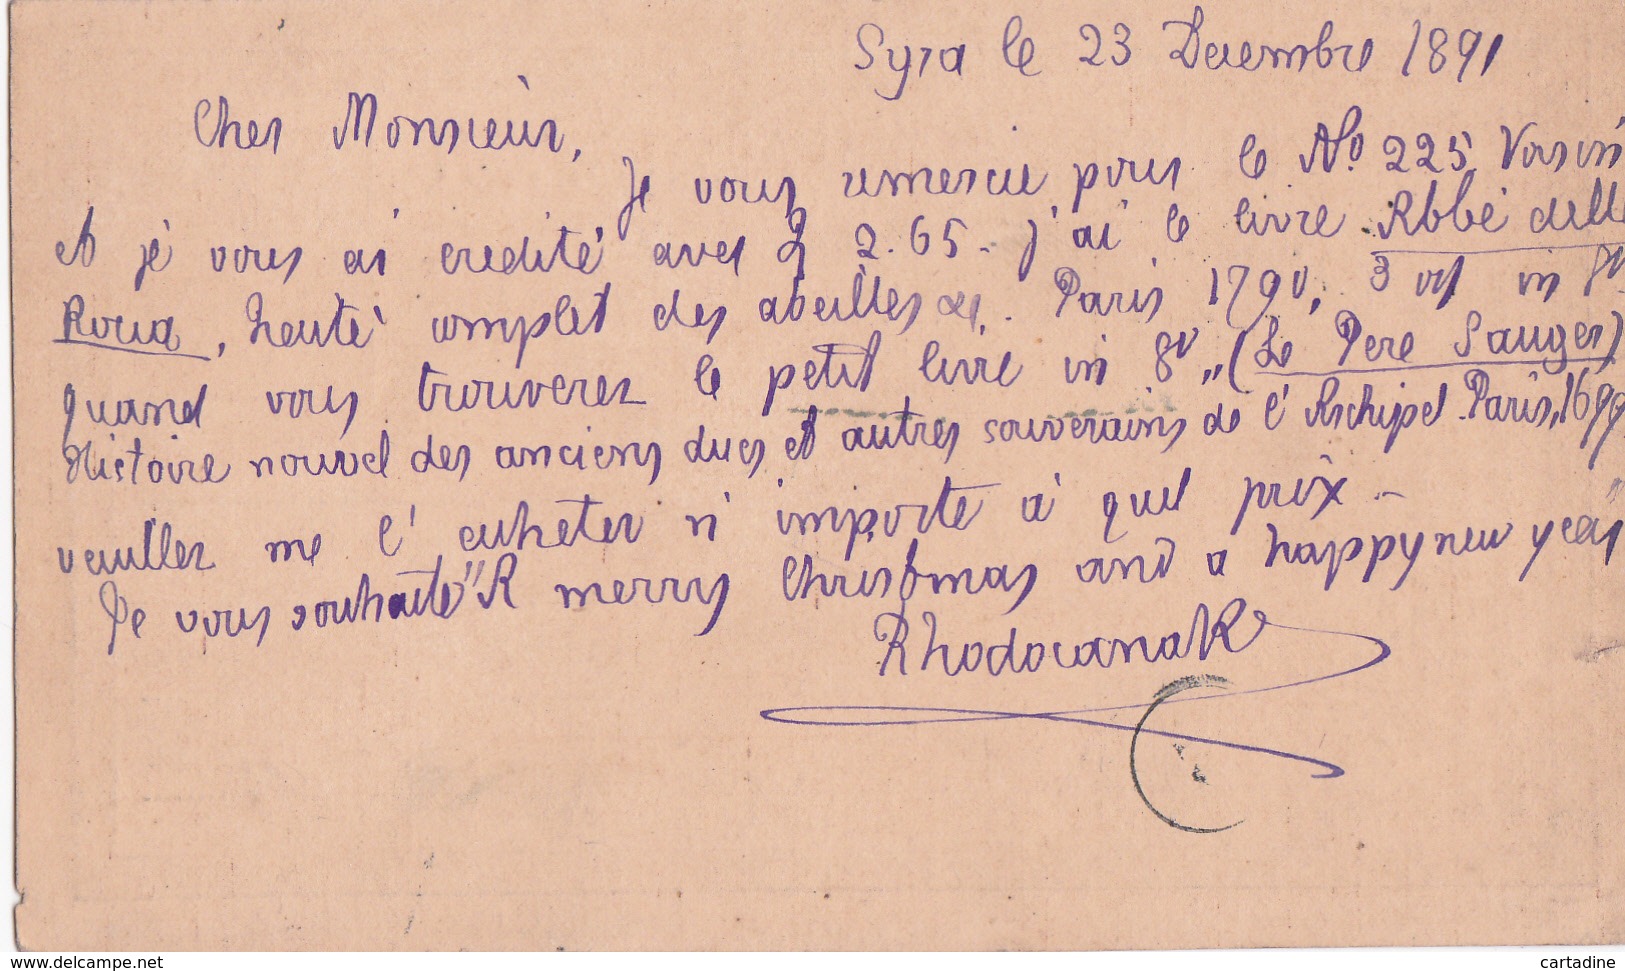 Syra le 23 Decembre 1891
Cher Monsieur,
Je vous remercie pour le No 225
et je vous ai credité avec 2.65. J'ai le livre Abbé della
Rocca, traité complet des abeilles &. Paris 1790, 3 vol in 8v
quand vous trouverez le petit livre in 8v „(Le Pere Sauger)
Histoire nouvel des anciens ducs et autres souverains de l'Archipel. Paris, 1699
veuillez me l'acheter n'importe à quel prix.-
Je vous souhaite "A merry Christmas and a happy new year"
Rhodocanaki
www.delcampe.net
cartadine